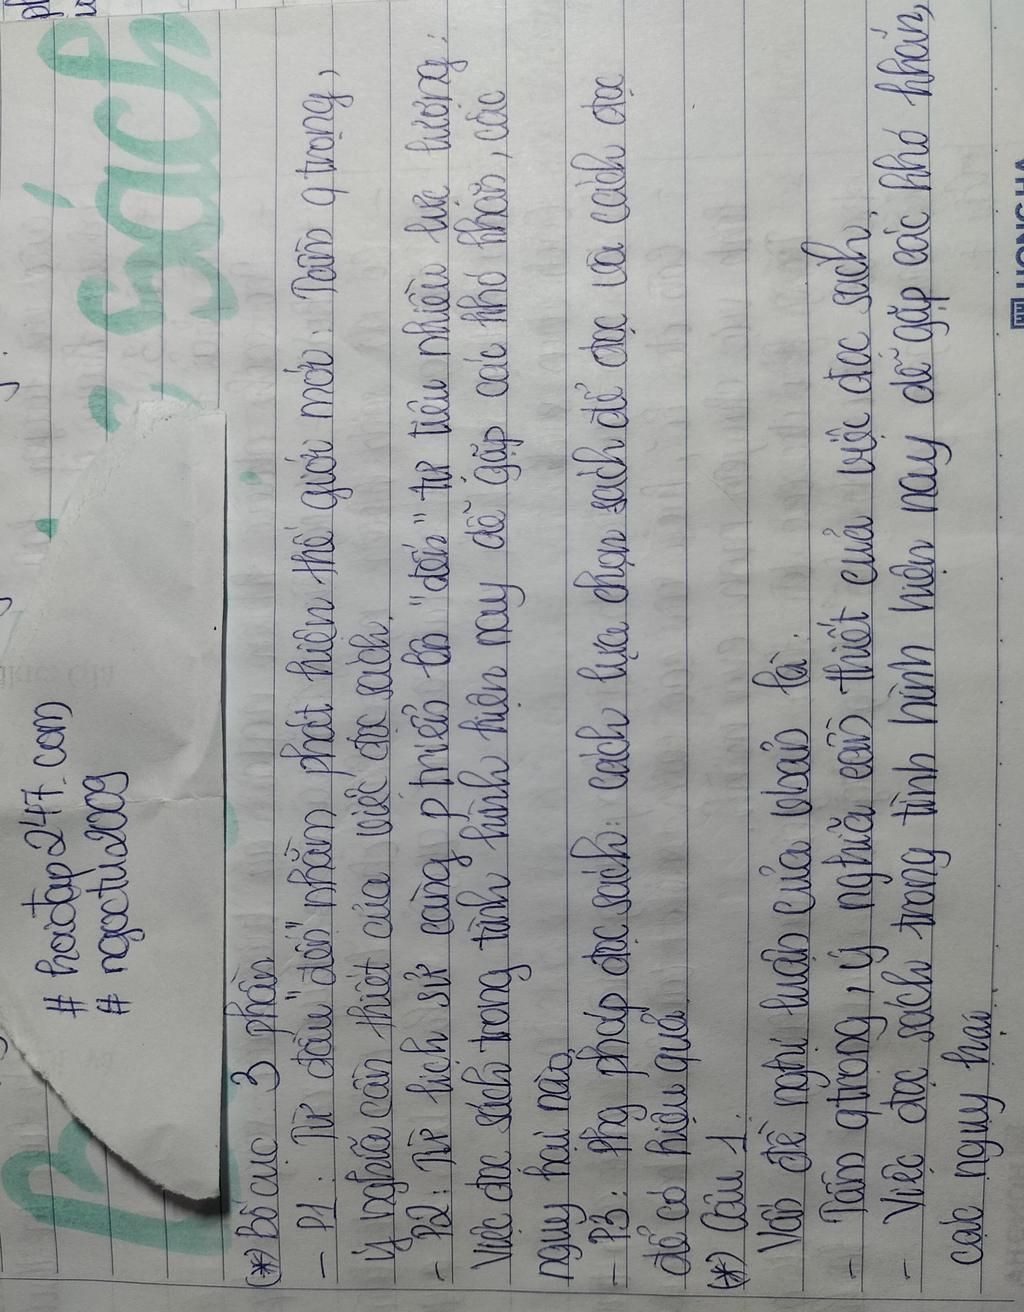 sách
# hoidap247.com
# ngoctu2009
(*) Bố cục 3 phần
- P1: Từ đầu "đến" nhằm phát hiện thế giới mới: Tầm qtrọng,
ý nghĩa cần thiết của việc đọc sách.
- P2: Từ lịch sử càng phiến to "đến" tự tiêu nhiều lực lượng:
Việc đọc sách trong tình hình hiện nay dễ gặp các khó khăn, các
nguy hại nào.
- P3: Phg pháp đọc sách: cách lựa chọn sách để đọc và cách đọc
để có hiệu quả.
(*) Câu 1.
Vấn đề nghị luận của vbản là.
- Tầm qtrong, ý nghĩa cần thiết của việc đọc sách.
- Việc đọc sách trong tình hình hiện nay dễ gặp các khó khăn,
các nguy hại
HONG HA